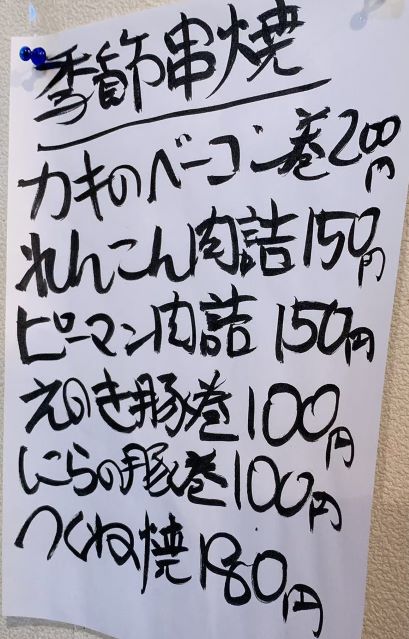 季節串焼
カキのベーコン巻200円
れんこん肉詰150円
ピーマン肉詰150円
えのき豚巻100円
にらの豚巻100円
つくね焼180円